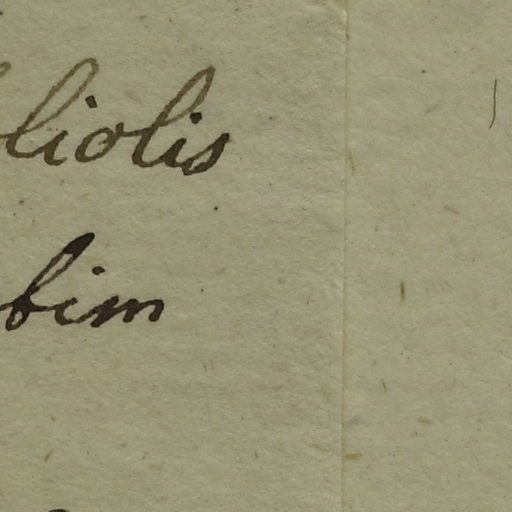 liolis
bim